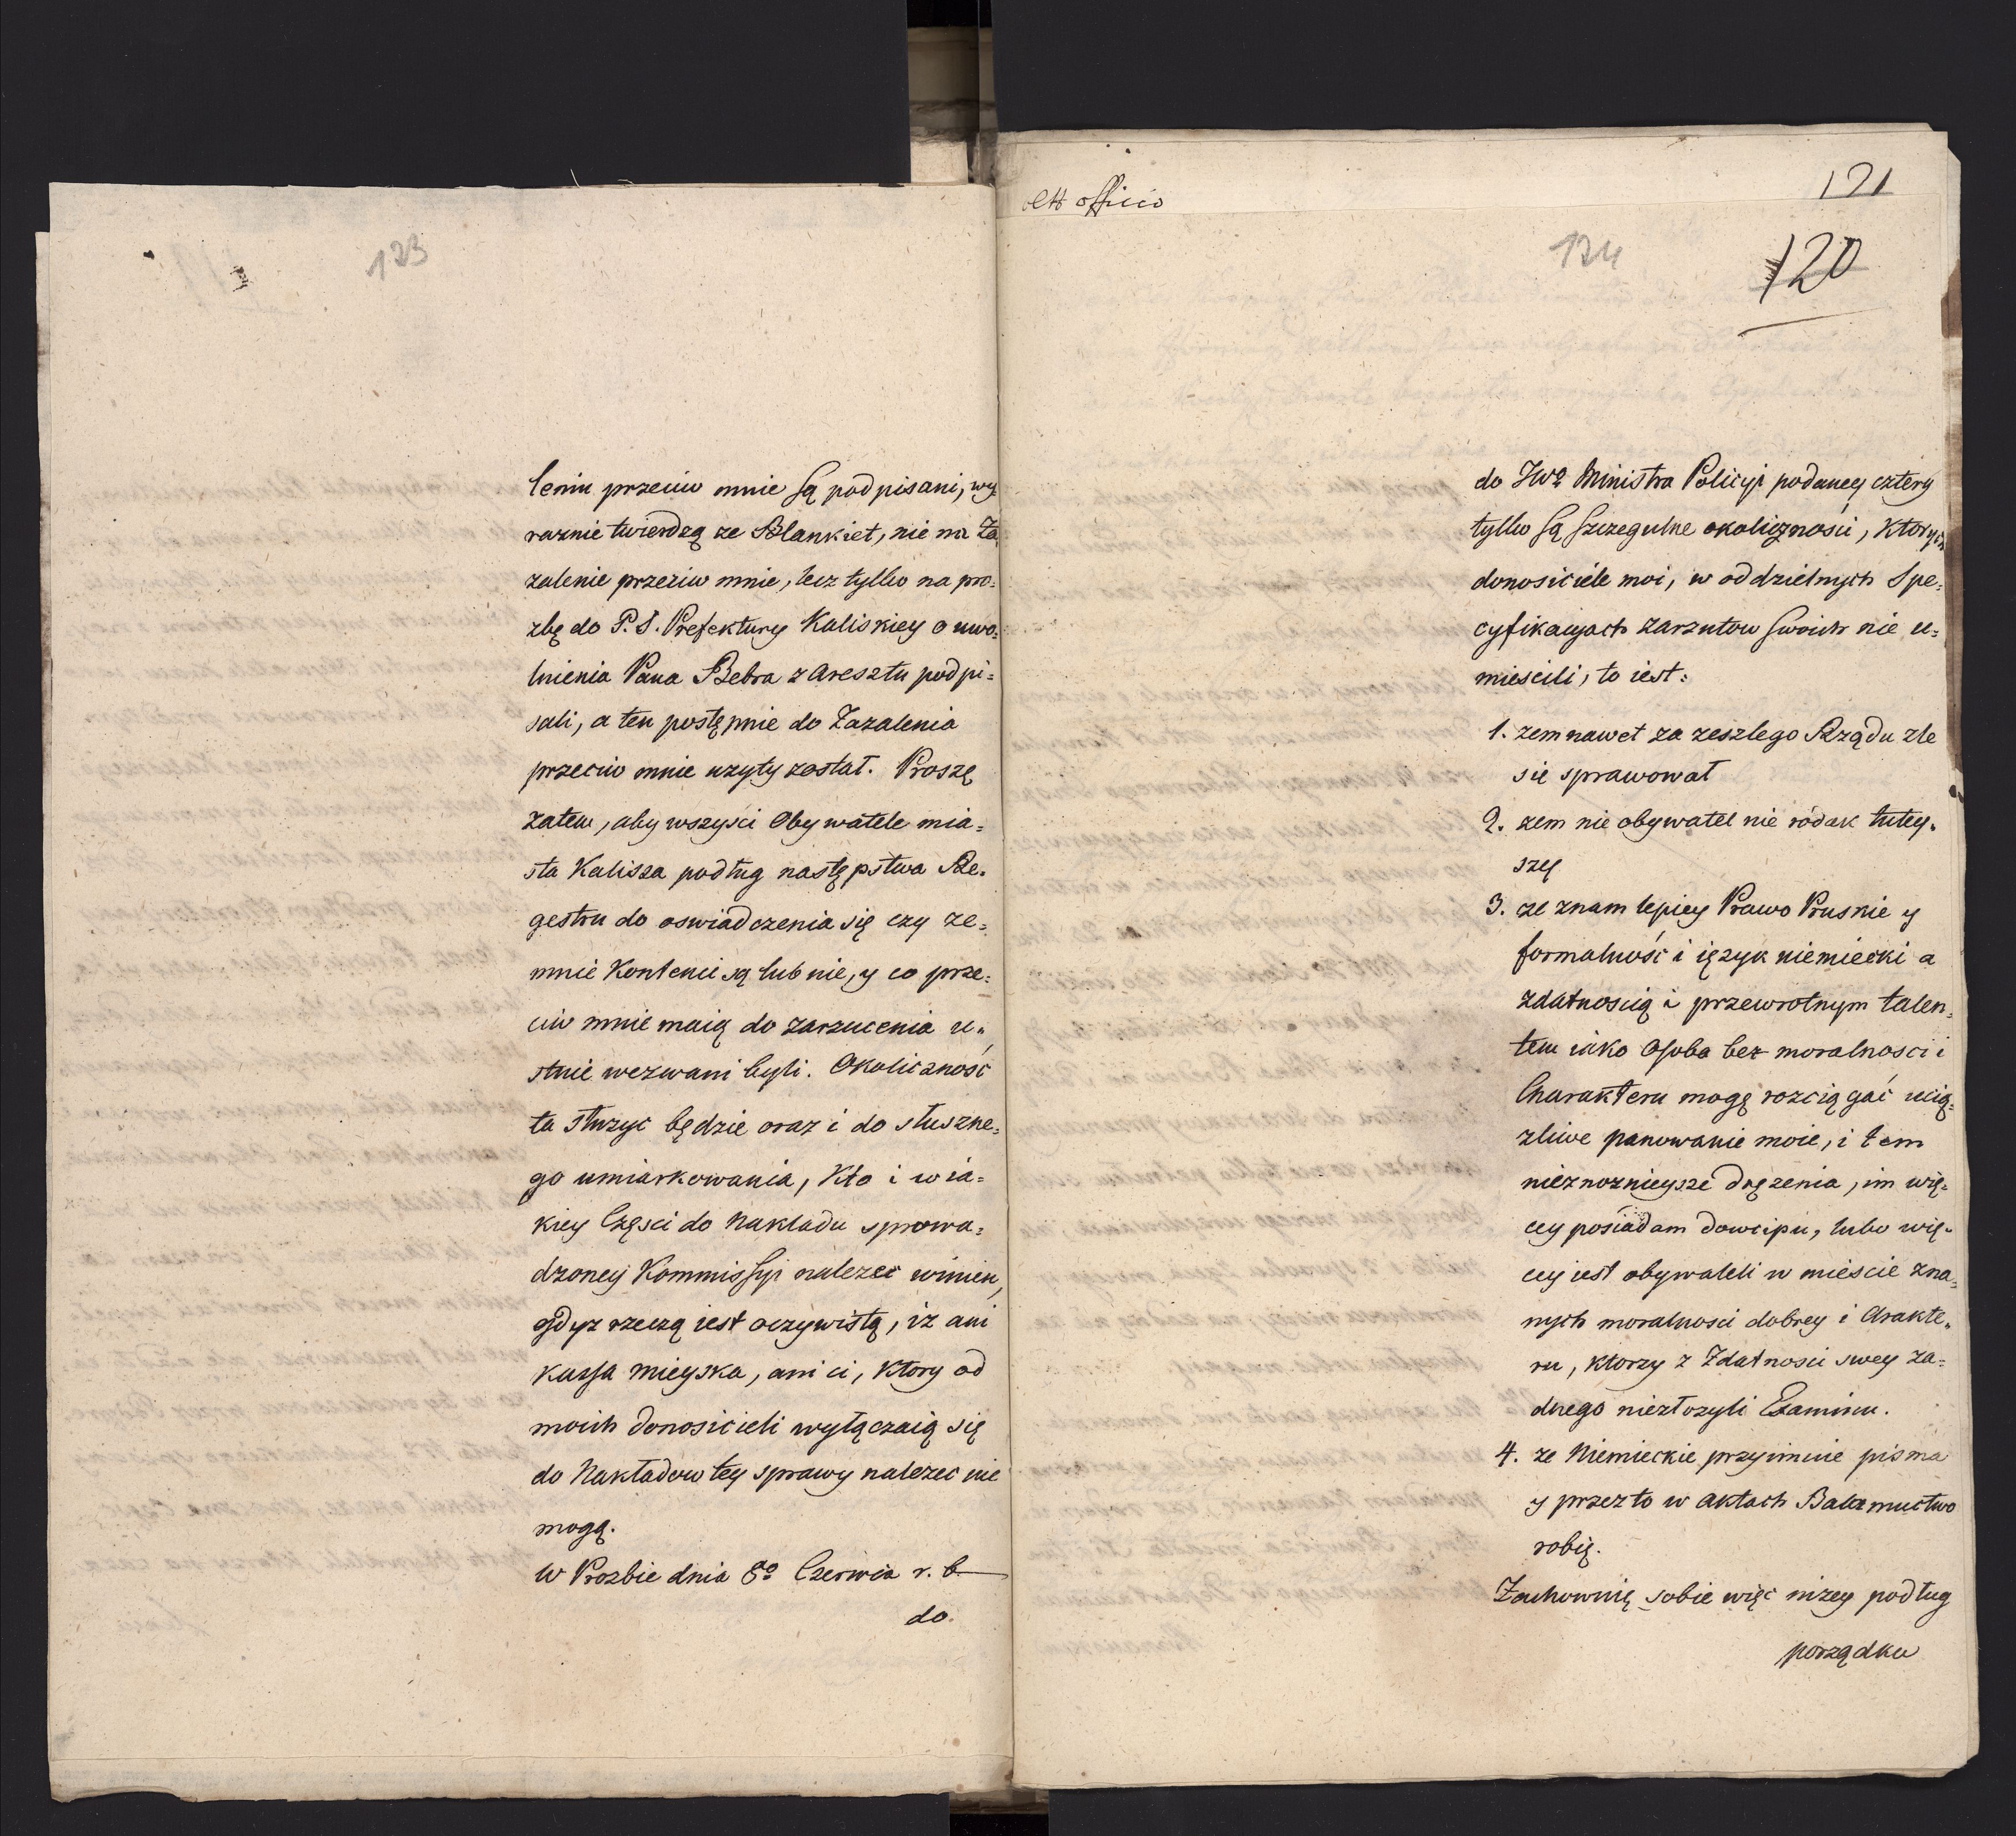 123
leniu przeciw mnie są podpisani, wy
raznie twierdzą ze Blankiet, nie na Za,
zalenie przeciw mnie, lecz tylko na pro=
zbę do P. S. Prefektury Kaliskiey o uwo=
lnienia Pana Bebra z Aresztu podpi=
sali, a ten postępnie do Zazalenia
przeciw mnie uzyty został. Proszę
zatem, aby wszysci Obywatele mia=
sta Kalisza podług następstwa Re=
gestru do oswiadczenia się czy ze=
mnie Kontenci są lub nie, y co prze=
ciw mnie maią do zarzucenia u=
stnie wezwani byli. Okoliczność
ta słuzyc będzie oraz i do słuszne=
go umiarkowania, Kto i w ia=
kiey Części do Nakładu sprowa=
dzoney Kommissyi nalezec winien,
gdyz rzeczą iest oczywistą, iz ani
kassa mieyska, ani ci, Ktory od
moich donosicieli wyłączaią się
do Nakładow tey sprawy nalezec nie
mogą.
W Prozbie dnia 8º Czerwca r. b
do
officio
121
124
120
do JWº Ministra Policyi podaney cztery
tylko są szczegulne okoliczności, Ktorych
donosiciele moi, w oddzielnych Spe=
cyfikacyach zarzutow swoich nie u=
miescili, to iest:
1. zem nawet za zeszłego Rządu zle
sie sprawował
2. zem nie obywatel nie ródak tutey=
szy
3. ze znam lepiey Prawo Pruskie y
formalność i ięzyk niemiecki a
zdatnoscią i przewrotnym talen=
tem iako Osoba bez moralnosci i
Charakteru mogę rozciągać ucią=
zliwe panowanie moie, i tem
nieznoznieysze dręzenia, im wię=
cey posiadam dowcipu, lubo wię=
cey iest obywateli w mieście zna=
nych moralnosci dobrey i Charakte=
ru, ktorzy z Zdatnosci swey za=
dnego niezłozyli Examinu.
4. ze Niemieckie przyimuie pisma
y przezto w aktach Bałamuctwo
robię.
Zachowuię sobie więc nizey podług
porządku